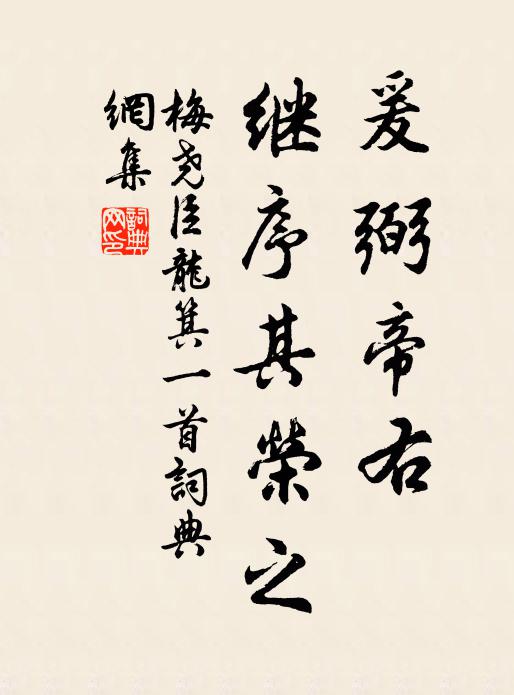 爰弼帝右
继序其榮之
梅尧臣龍箕一首詞典
網集
詞典網印